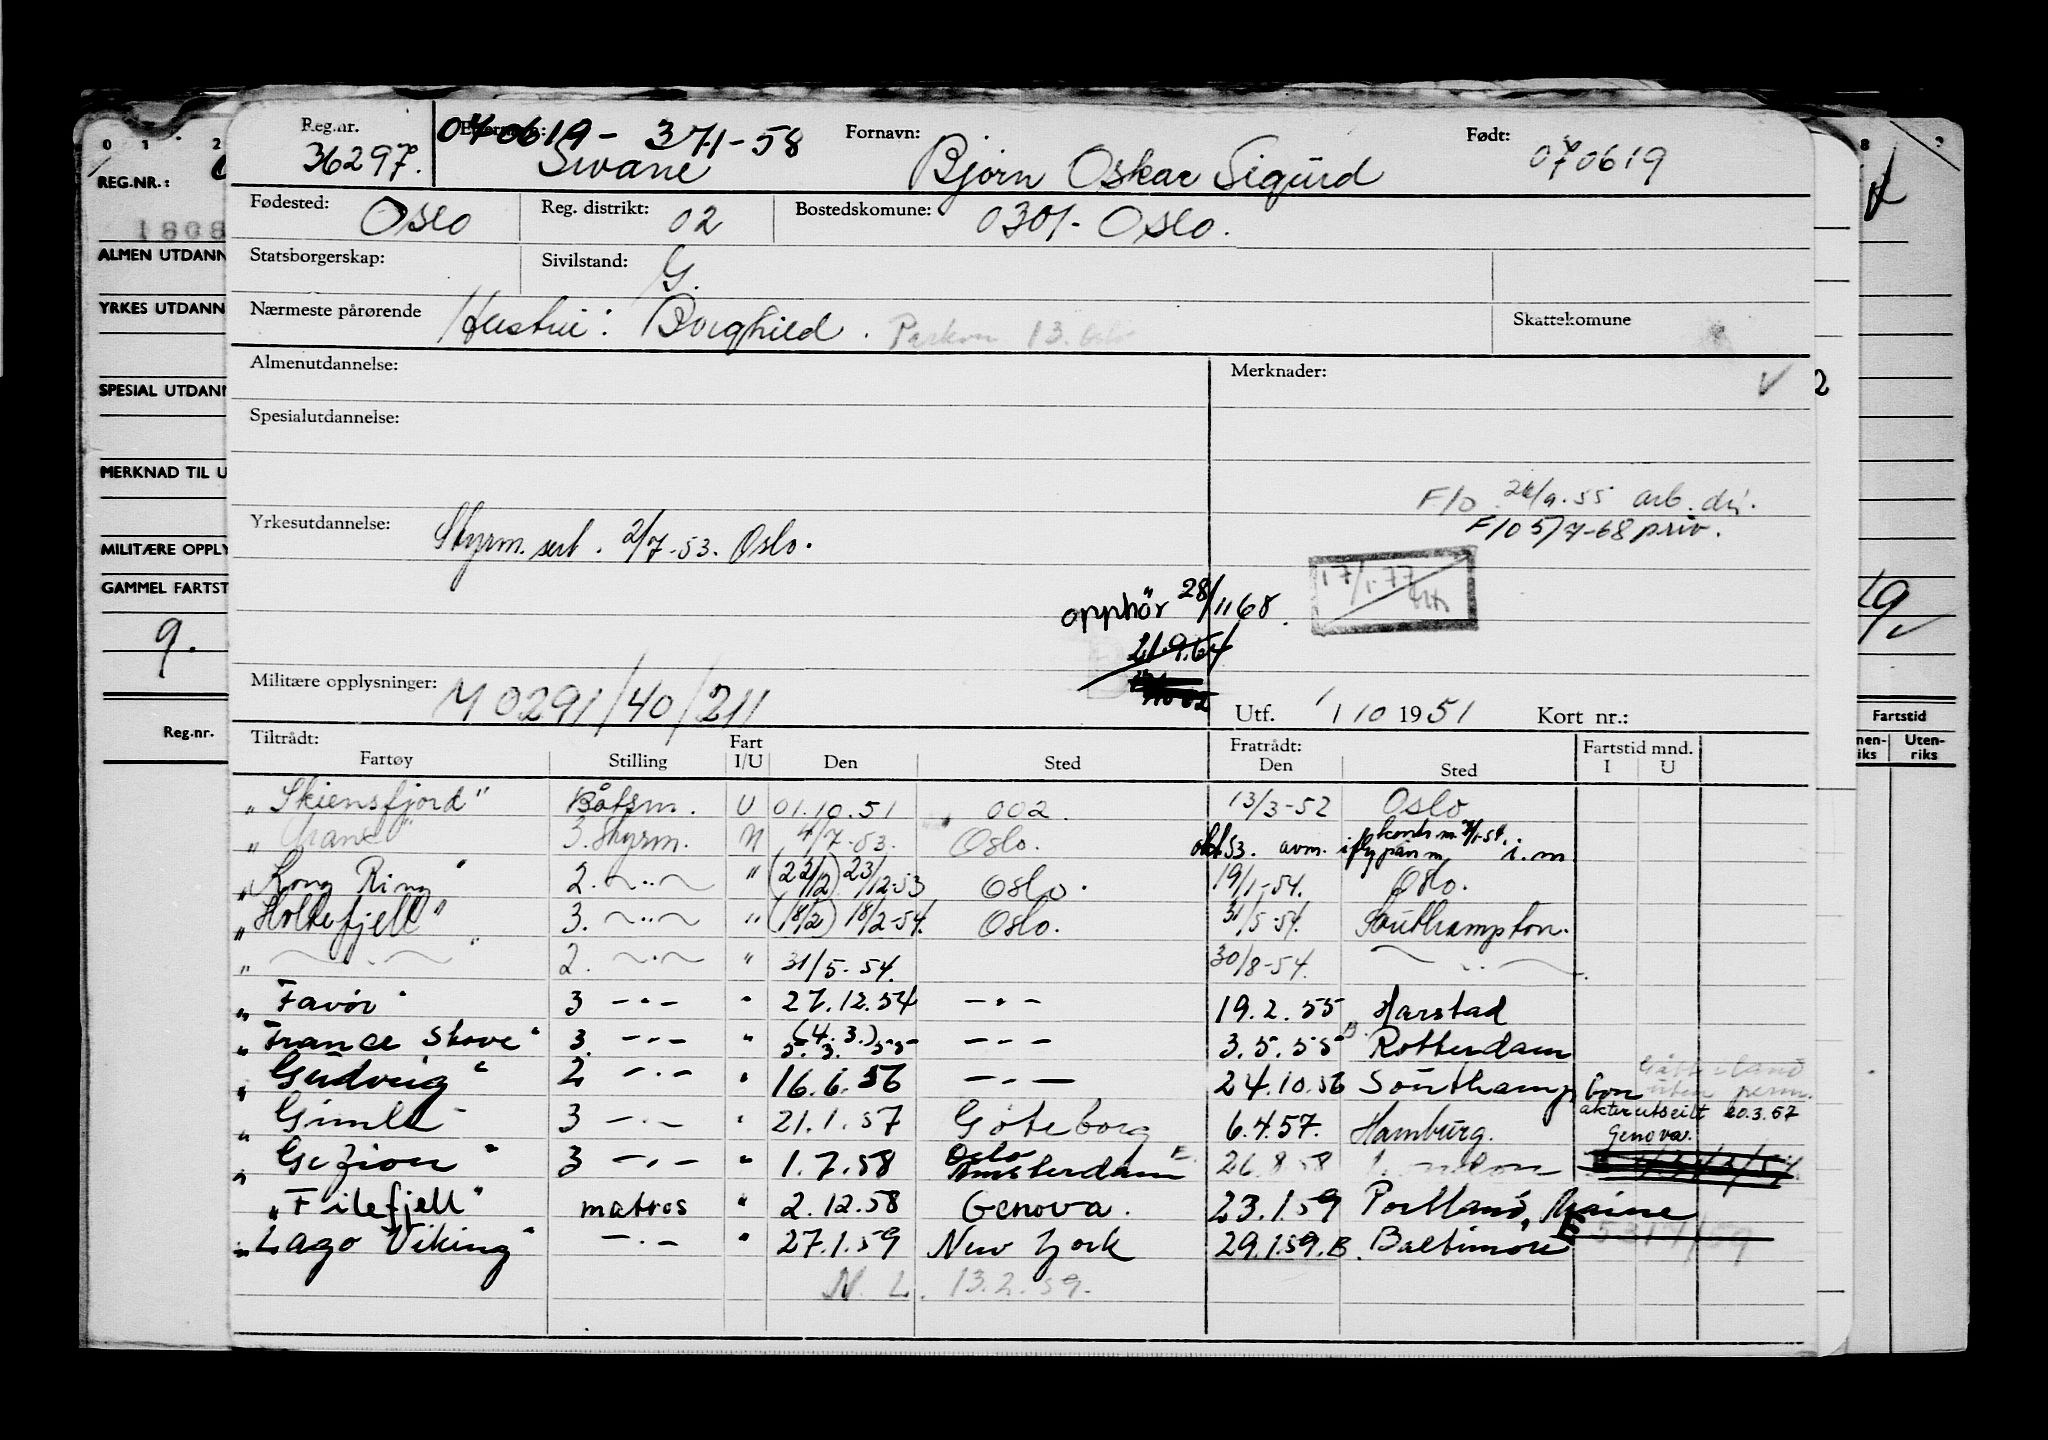 0 1 2
REG.NR.:
1808
ALMEN UTDANN
YRKES UTDANN
SPESIAL UTDANN
MERKNAD TIL U
MILITÆRE OPPLY
GAMMEL FARTST
9.
Reg.nr.
Reg.nr. 36297. Etternavn: 070619 - 371-58
Swane Fornavn: Bjørn Oskar Sigurd Født: 070619
Fødested: Oslo Reg. distrikt: 02 Bostedskomune: 0301- Oslo.
Statsborgerskap: Sivilstand: G.
Nærmeste pårørende Hustru: Borghild. 13. Oslo Skattekomune
Almenutdannelse: Merknader:
Spesialutdannelse:
F/O 26/9-55 arb.
Yrkesutdannelse: Styrm. sert. 2/7-53. Oslo. F/O 5/7-68 priv.
17/1-77
opphör 28/11 68.
21.9.64
Militære opplysninger: M 0291/40/211
Utf. 1/10 1951 Kort nr.:
Tiltrådt: Fartøy Stilling Fart I/U Den Sted Fratrådt: Den Sted Fartstid mnd. I U
"Skiensfjord" Båtsm. U 01.10.51 002. 13/3-52 Oslo
3. Styrm. 4/7-53. Oslo. okt 53. avm. i.m
"Kong Ring" 2. ~..~ " (22/12) 23/12-53 Oslo. 19/1-54. Oslo.
"Holtefjell" 3. ~..~ " (18/2) 18/2-54. Oslo. 31/5-54. Southampton.
" ~ . ~ " 2. ~.~ " 31/5-54. 30/8-54. ~ .. ~
"Favör" 3 -.- " 27.12.54 -.- 19.2.55 Harstad
"France Skove" 3. -.- " (4.3.) 5.3.55 --- 3.5.55 B. Rotterdam
"Gudveig" 2 -.- " 16.6.56 -.- 24.10.56 Southampton uten perm.
"Gimle" 3 -.- " 21.1.57 Göteborg 6.4.57. Hamburg. akterutseilt 20.3.57 Genova.
"Gefion" 3 -.- " 1.7.58 Oslo Amsterdam E. 26.8.58
"Filefjell" matros " 2.12.58 Genova. 23.1.59 Portland, Maine
"Lago Viking" -.- " 27.1.59 New York 29.1.59. B. Baltimore E 5317/59
N. L. 13.2.59.
8 9
2
19
Fartstid
nen-iks Uten-riks